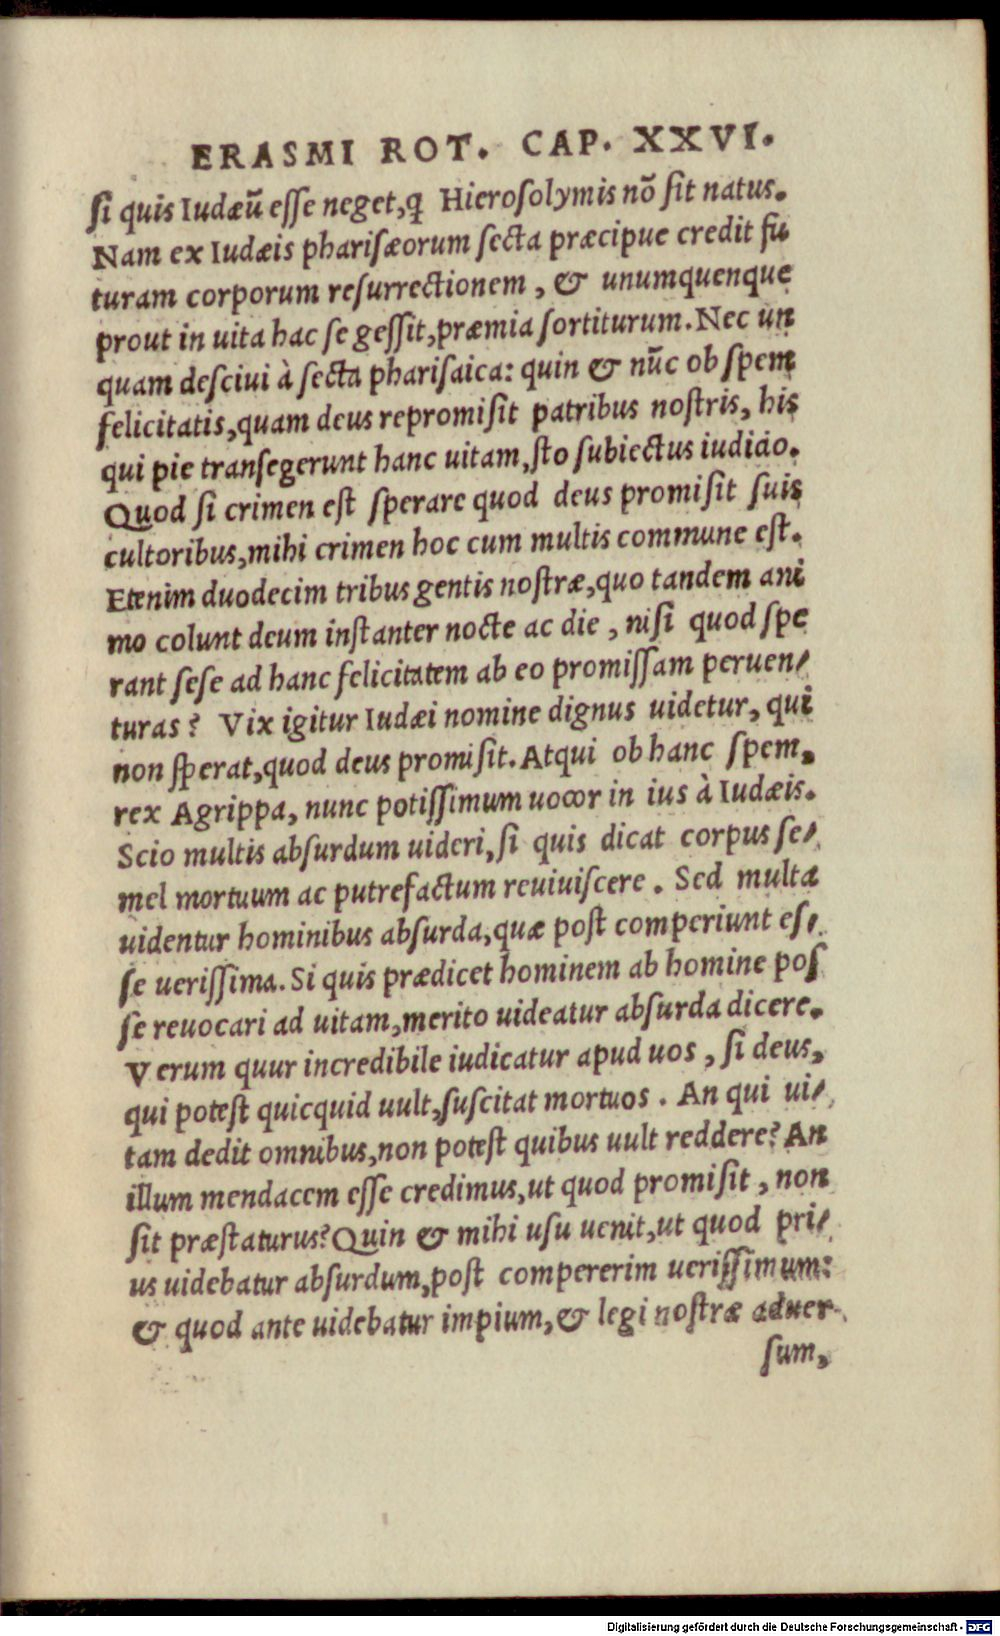 ERASMI ROT. CAP. XXVI.
si quis Iudæũ esse neget, ꝙ Hierosolymis nõ sit natus.
Nam ex Iudæis pharisæorum secta præcipue credit fu
turam corporum resurrectionem, & unumquenque
prout in uita hac se gessit, præmia sortiturum. Nec un
quam desciui à secta pharisaica: quin & nũc ob spem
felicitatis, quam deus repromisit patribus nostris, his
qui pie transegerunt hanc uitam, sto subiectus iudicio.
Quod si crimen est sperare quod deus promisit suis
cultoribus, mihi crimen hoc cum multis commune est.
Etenim duodecim tribus gentis nostræ, quo tandem ani
mo colunt deum instanter nocte ac die, nisi quod spe
rant sese ad hanc felicitatem ab eo promissam peruen-
turas? Vix igitur Iudæi nomine dignus uidetur, qui
non sperat, quod deus promisit. Atqui ob hanc spem,
rex Agrippa, nunc potissimum uocor in ius à Iudæis.
Scio multis absurdum uideri, si quis dicat corpus se-
mel mortuum ac putrefactum reuiuiscere. Sed multa
uidentur hominibus absurda, quæ post comperiunt es-
se uerissima. Si quis prædicet hominem ab homine pos
se reuocari ad uitam, merito uideatur absurda dicere.
Verum quur incredibile iudicatur apud uos, si deus,
qui potest quicquid uult, suscitat mortuos. An qui ui-
tam dedit omnibus, non potest quibus uult reddere? An
illum mendacem esse credimus, ut quod promisit, non
sit præstaturus? Quin & mihi usu uenit, ut quod pri-
us uidebatur absurdum, post compererim uerissimum:
& quod ante uidebatur impium, & legi nostræ aduer-
sum,
Digitalisierung gefördert durch die Deutsche Forschungsgemeinschaft - DFG